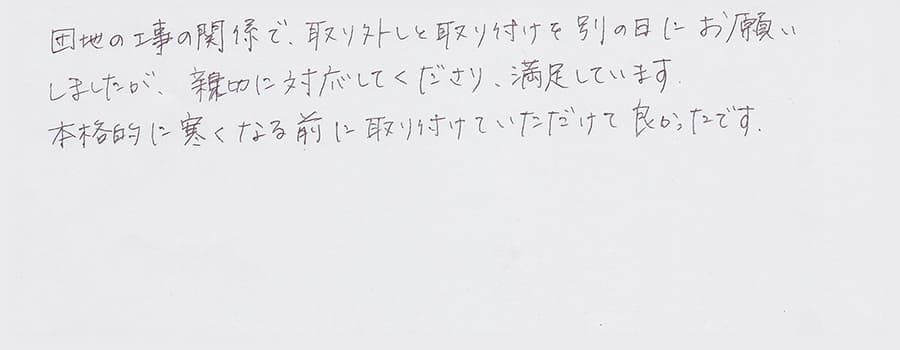 団地の工事の関係で、取り外しと取り付けを別の日にお願い
しましたが、親切に対応してくださり、満足しています.
本格的に寒くなる前に取り付けていただけて良かったです.